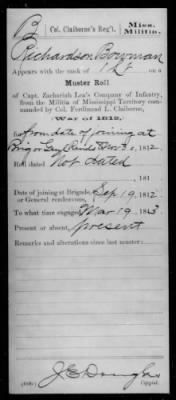 B Col. Claiborne's Reg't. Miss. Militia.
Richardson Bowman
Appears with the rank of on a
Muster Roll
of Capt. Zachariah Lea's Company of Infantry,
from the Militia of Mississippi Territory com-
manded by Col. Ferdinand L. Claiborne,
War of 1812,
for from date of joining at
Brig or Genl Rends Nov 30, 1812
Roll dated Not dated
181
Date of joining at Brigade or General rendezvous, Sep 19, 1812
To what time engaged, Mar 19, 1813
Present or absent, present
Remarks and alterations since last muster:
Copyist.